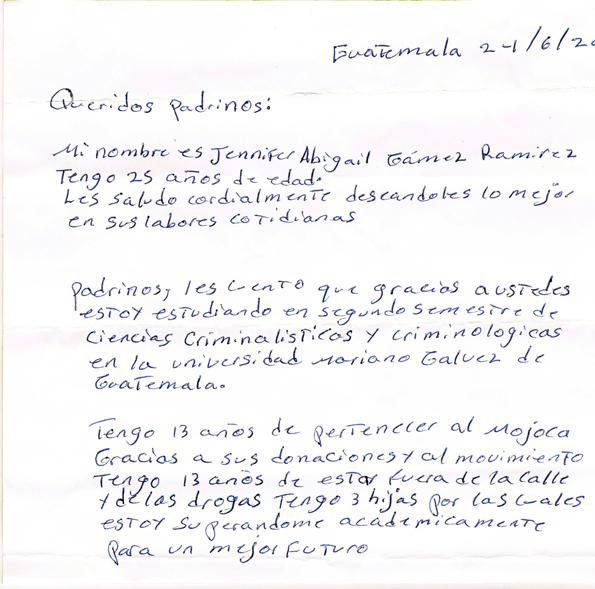 Guatemala 24/6/20
Queridos padrinos:
Mi nombre es Jennifer Abigail Gámez Ramirez
Tengo 25 años de edad.
Les saludo cordialmente deseandoles lo mejor
en sus labores cotidianas
padrinos, les cuento que gracias a ustedes
estoy estudiando en segundo semestre de
Ciencias Criminalisticas y criminologicas
en la universidad Mariano Galvez de
Guatemala.
Tengo 13 años de pertenecer al Mojoca
Gracias a sus donaciones y al movimiento
Tengo 13 años de estar fuera de la calle
y de las drogas Tengo 3 hijas por las cuales
estoy superandome academicamente
para un mejor futuro